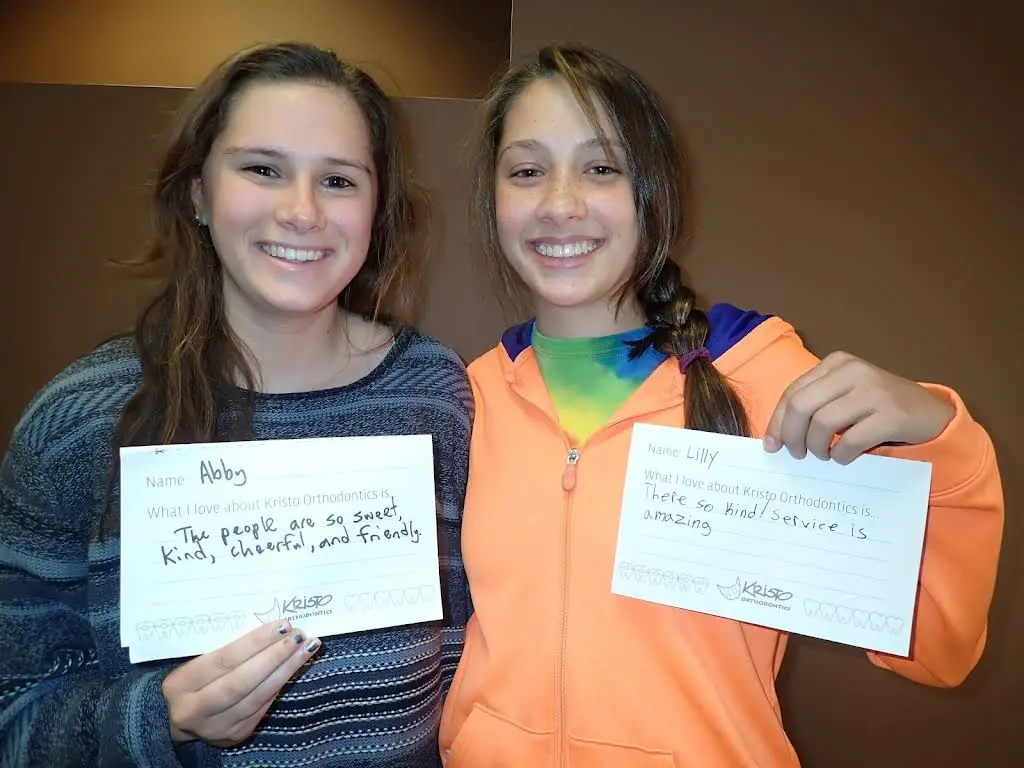 Name Abby
What I love about Kristo Orthodontics is...
The people are so sweet,
kind, cheerful, and friendly.
KRISTO
ORTHODONTICS
Name: Lilly
What I love about Kristo Orthodontics is...
There so kind! Service is
amazing
KRISTO
ORTHODONTICS